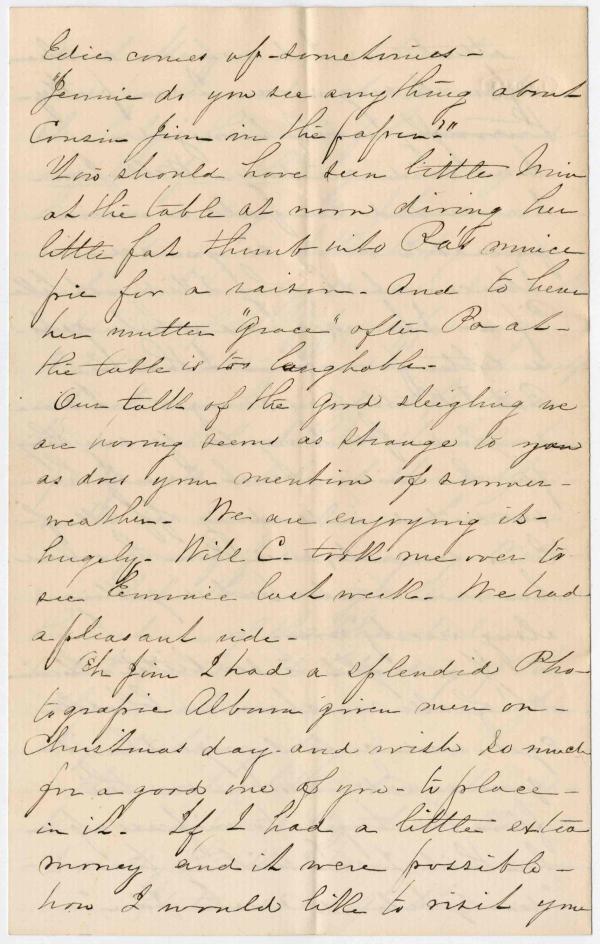 Edie comes up - sometimes -
"Jennie do you see anything about
Cousin Jim in the paper?"
You should have seen little Min
at the table at noon diving her
little fat thumb into Pa's mince
pie for a raison - And to hear
her mutter "Grace" after Pa at -
the table is too laughable -
Our talk of the good sleighing we
are having seems as strange to you
as does your mention of summer -
weather - We are enjoying it -
hugely - Will C - took me over to
see Emmie last week - We had
a pleasant ride -
Oh Jim I had a splendid Pho-
tografic Album given men on -
Christmas day - and wish so much
for a good one of you - to place -
in it - If I had a little extra
money and it were possible -
how I would like to visit you